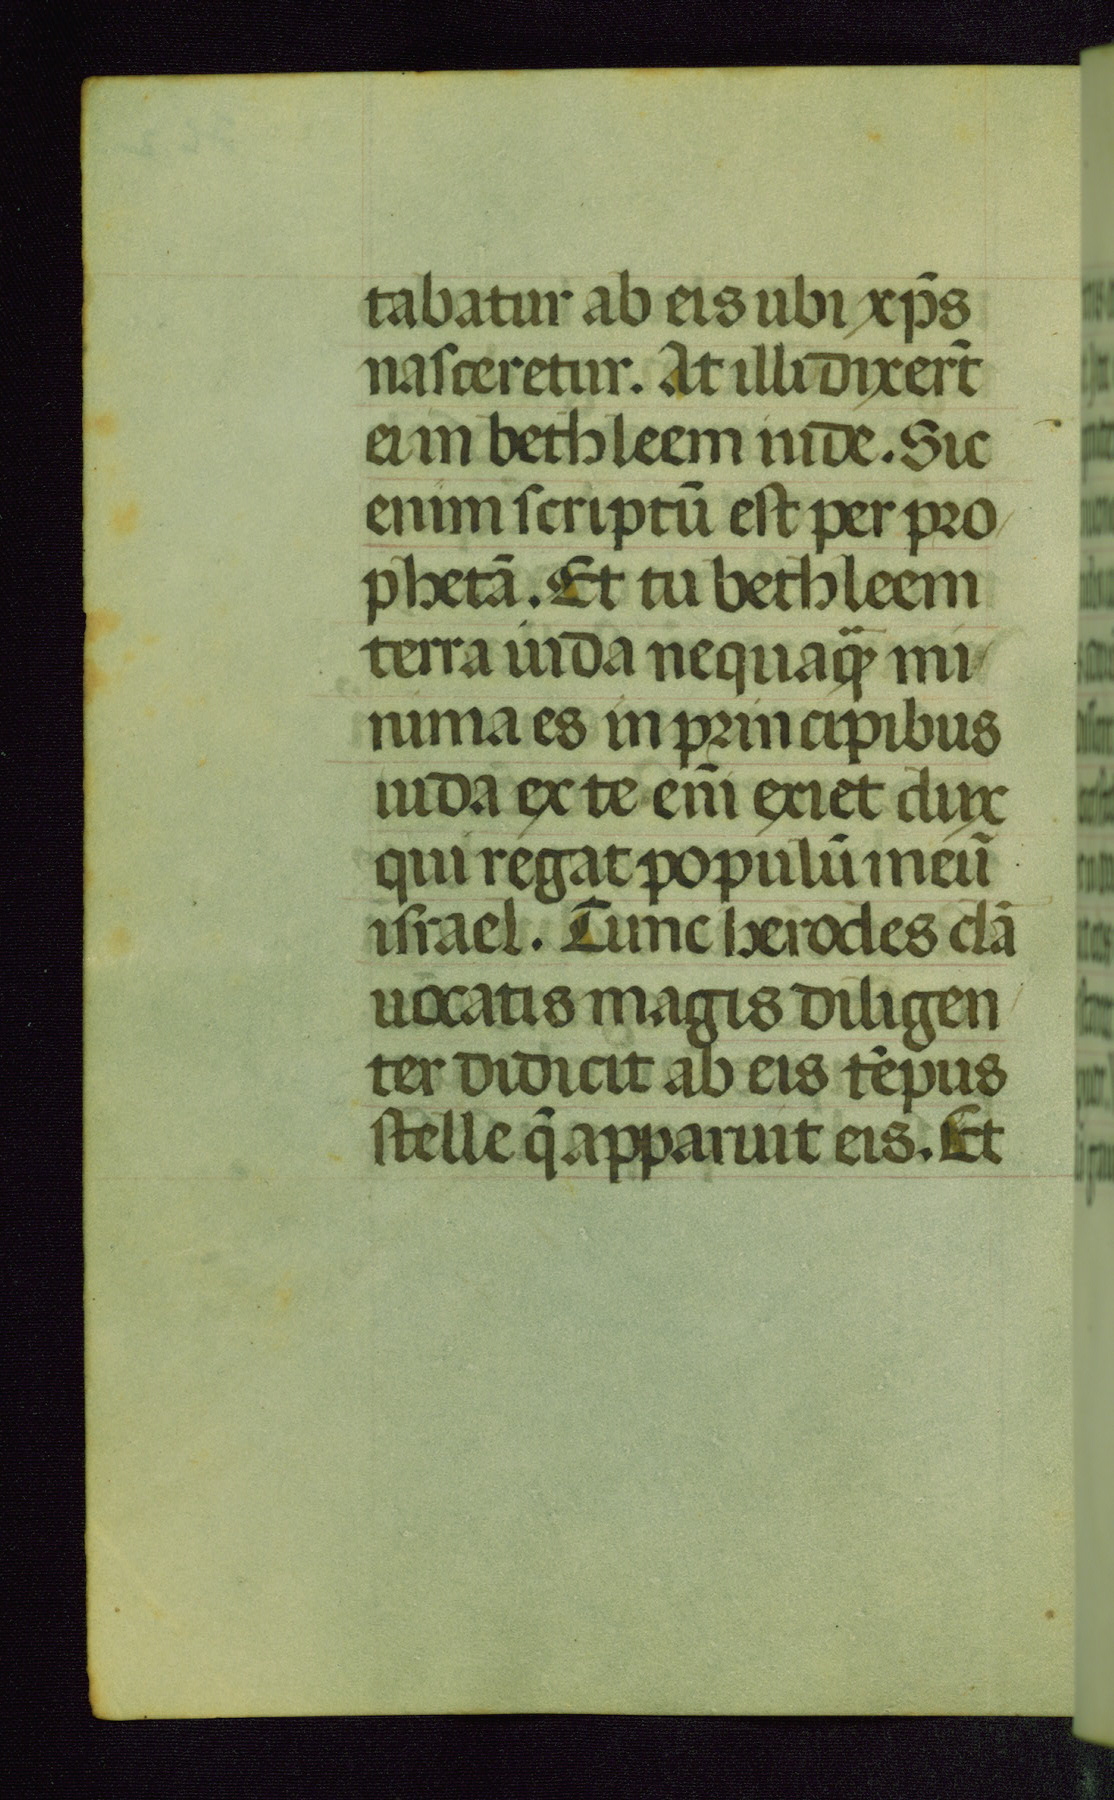 tabatur ab eis ubi xp̄s
naſceretur. At illi dixer̄t
ei in bethleem iude. Sic
enim ſcriptū eſt per pro
phetā. Et tu bethleem
terra iuda nequaq̈ mi
nima es in principibus
iuda ex te eni̅ exiet dux
qui regat populū meū
iſrael. Tunc herodes clā
uocatis magis diligen
ter didicit ab eis te̅pus
ſtelle q̄ apparuit eis. Et